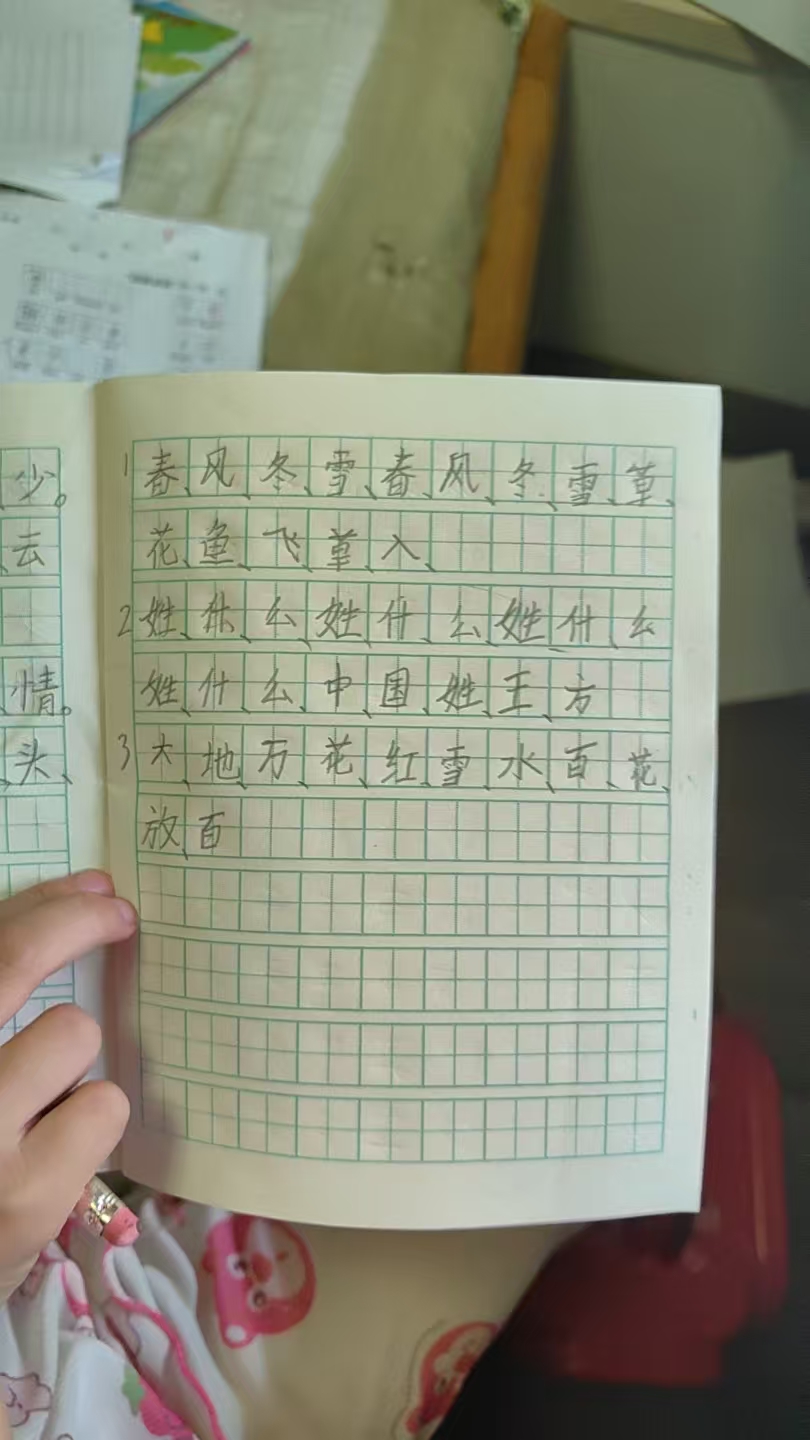 少。
云
情。
头、
1 春、风、冬、雪、春、风、冬、雪、草、
花、鱼、飞、草、入、
2 姓、什、么、姓、什、么、姓、什、么
姓、什、么、中、国、姓、王、方
3 大、地、万、花、红、雪、水、百、花、
放、百